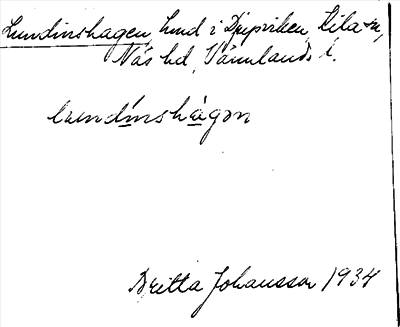 Lundinshagen, hmd i Djupviken, Kila sn,
Näs hd, Värmlands l.
lundinshagən
Britta Johansson 1934